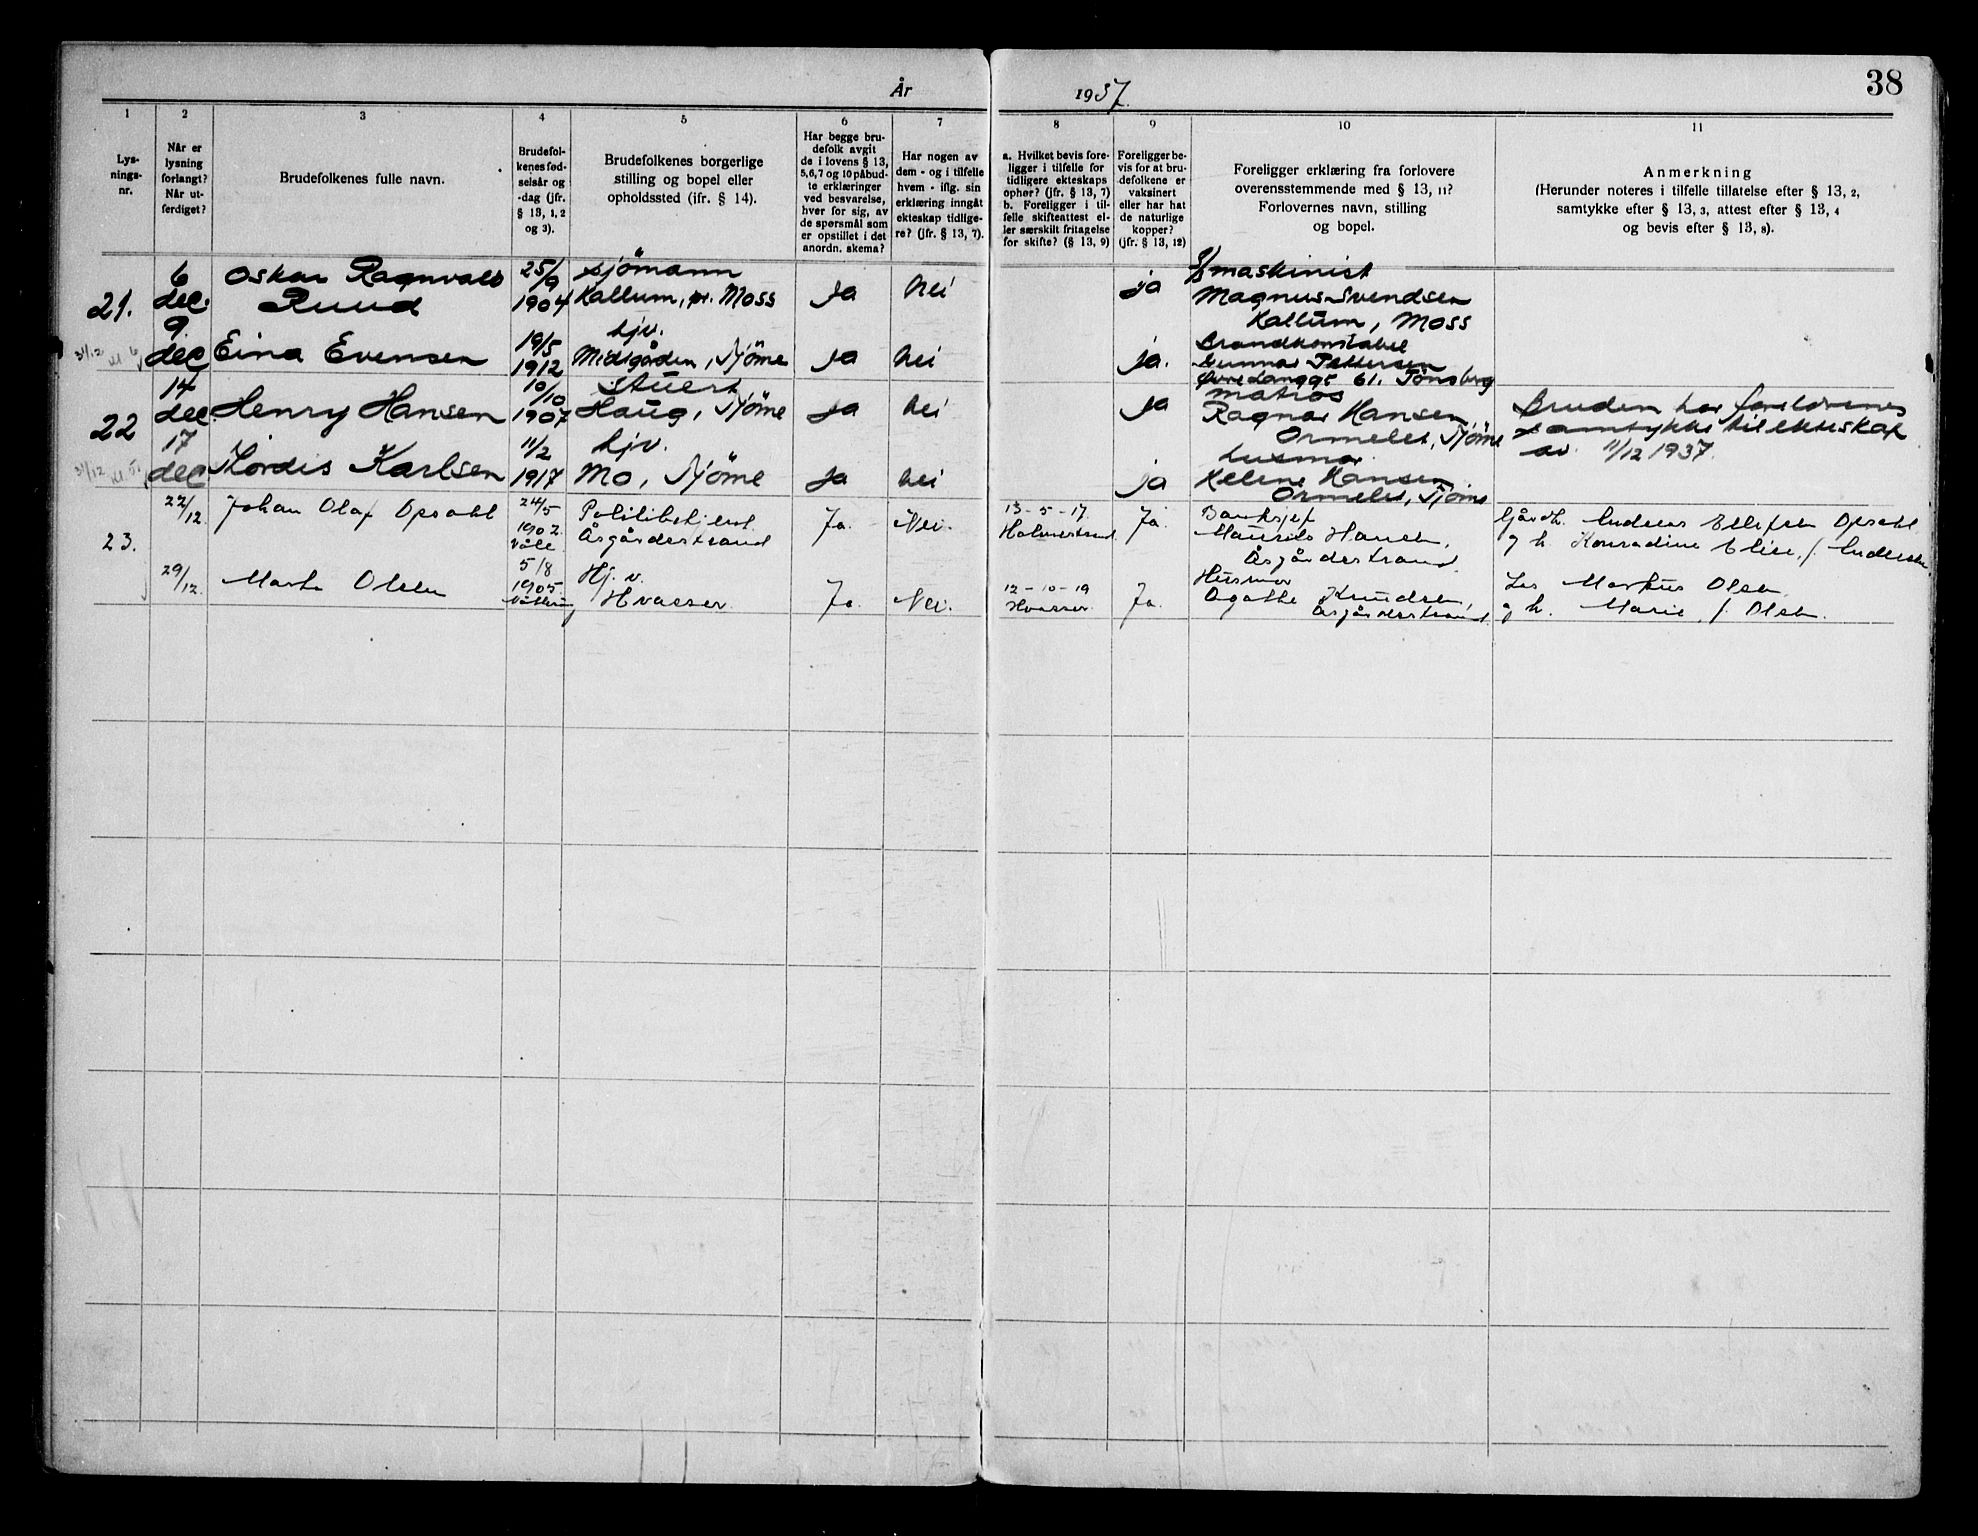 År 1937.
38
1
2
3
4
5
6
7
8
9
10
11
Lys-
nings-
nr.
Når er
lysning
forlangt?
Når ut-
ferdiget?
Brudefolkenes fulle navn.
Brudefol-
kenes fød-
selsår og
-dag (jfr.
§ 13, 1, 2
og 3).
Brudefolkenes borgerlige
stilling og bopel eller
opholdssted (ifr. § 14).
Har begge bru-
defolk avgit
de i lovens § 13,
5,6,7 og 10 påbud-
te erklæringer
ved besvarelse,
hver for sig, av
de spørsmål som
er opstillet i det
anordn. skema?
Har nogen av
dem - og i tilfelle
hvem - iflg. sin
erklæring inngåt
ekteskap tidlige-
re? (jfr. § 13, 7).
a. Hvilket bevis fore-
ligger i tilfelle for
tidligere ekteskaps
ophør? (jfr. § 13, 7)
b. Foreligger i til-
felle skifteattest el-
ler særskilt fritagelse
for skifte? (§ 13, 9)
Foreligger be-
vis for at bru-
defolkene er
vaksinert
eller har hat
de naturlige
kopper?
(jfr. § 13, 12)
Foreligger erklæring fra forlovere
overensstemmende med § 13, 11?
Forlovernes navn, stilling
og bopel.
Anmerkning
(Herunder noteres i tilfelle tillatelse efter § 13, 2,
samtykke efter § 13, 3, attest efter § 13, 4
og bevis efter § 13, 8).
21.
6
dec.
Oskar Ragnvald
Ruud
25/9
1904
sjömann
Kallum, pr. Moss
ja
nei
ja
maskinist
Magnus Svendsen
Kallum, Moss
9.
dec
31/12
Eina Evensen
19/5
1912
hjv.
Midtgården, Tjöme
ja
nei
ja.
Brandkonstabel
Gunnar Pettersen
Øvre Langgt 61. Tönsberg
22
14
dec
Henry Hansen
10/10
1907
Stuert
Haug, Tjöme
ja
nei
ja
matros
Ragnar Hansen
Ormelet, Tjöme
Bruden har foreldrenes
samtykke til ekteskap
av 11/12 1937.
17
dec
31/12
Hördis Karlsen
11/2
1917
hjv.
Mo, Tjöme
ja
nei
ja
husmor
Helene Hansen
Ormelet, Tjöme
23.
22/12.
Johan Olaf Opsahl
24/5
1902.
Våle
Politibetjent.
Åsgårdestrand
Ja.
Nei.
13-5-17.
Holmestrand.
Ja.
Banksjef
Maurits Hansen,
Åsgårdestrand.
Gårdbr. Andreas Ellefsen Opsahl
g h. Konradine Elise, f. Andersen.
29/12.
Marta Olsen
5/8
1905
Hj. v.
Hvasser
Ja.
Nei.
12-10-19
Hvasser.
Ja.
Husmor
Agathe Knudsen,
Åsgårdestrand.
Los Markus Olsen
g h. Marie, f. Olsen.